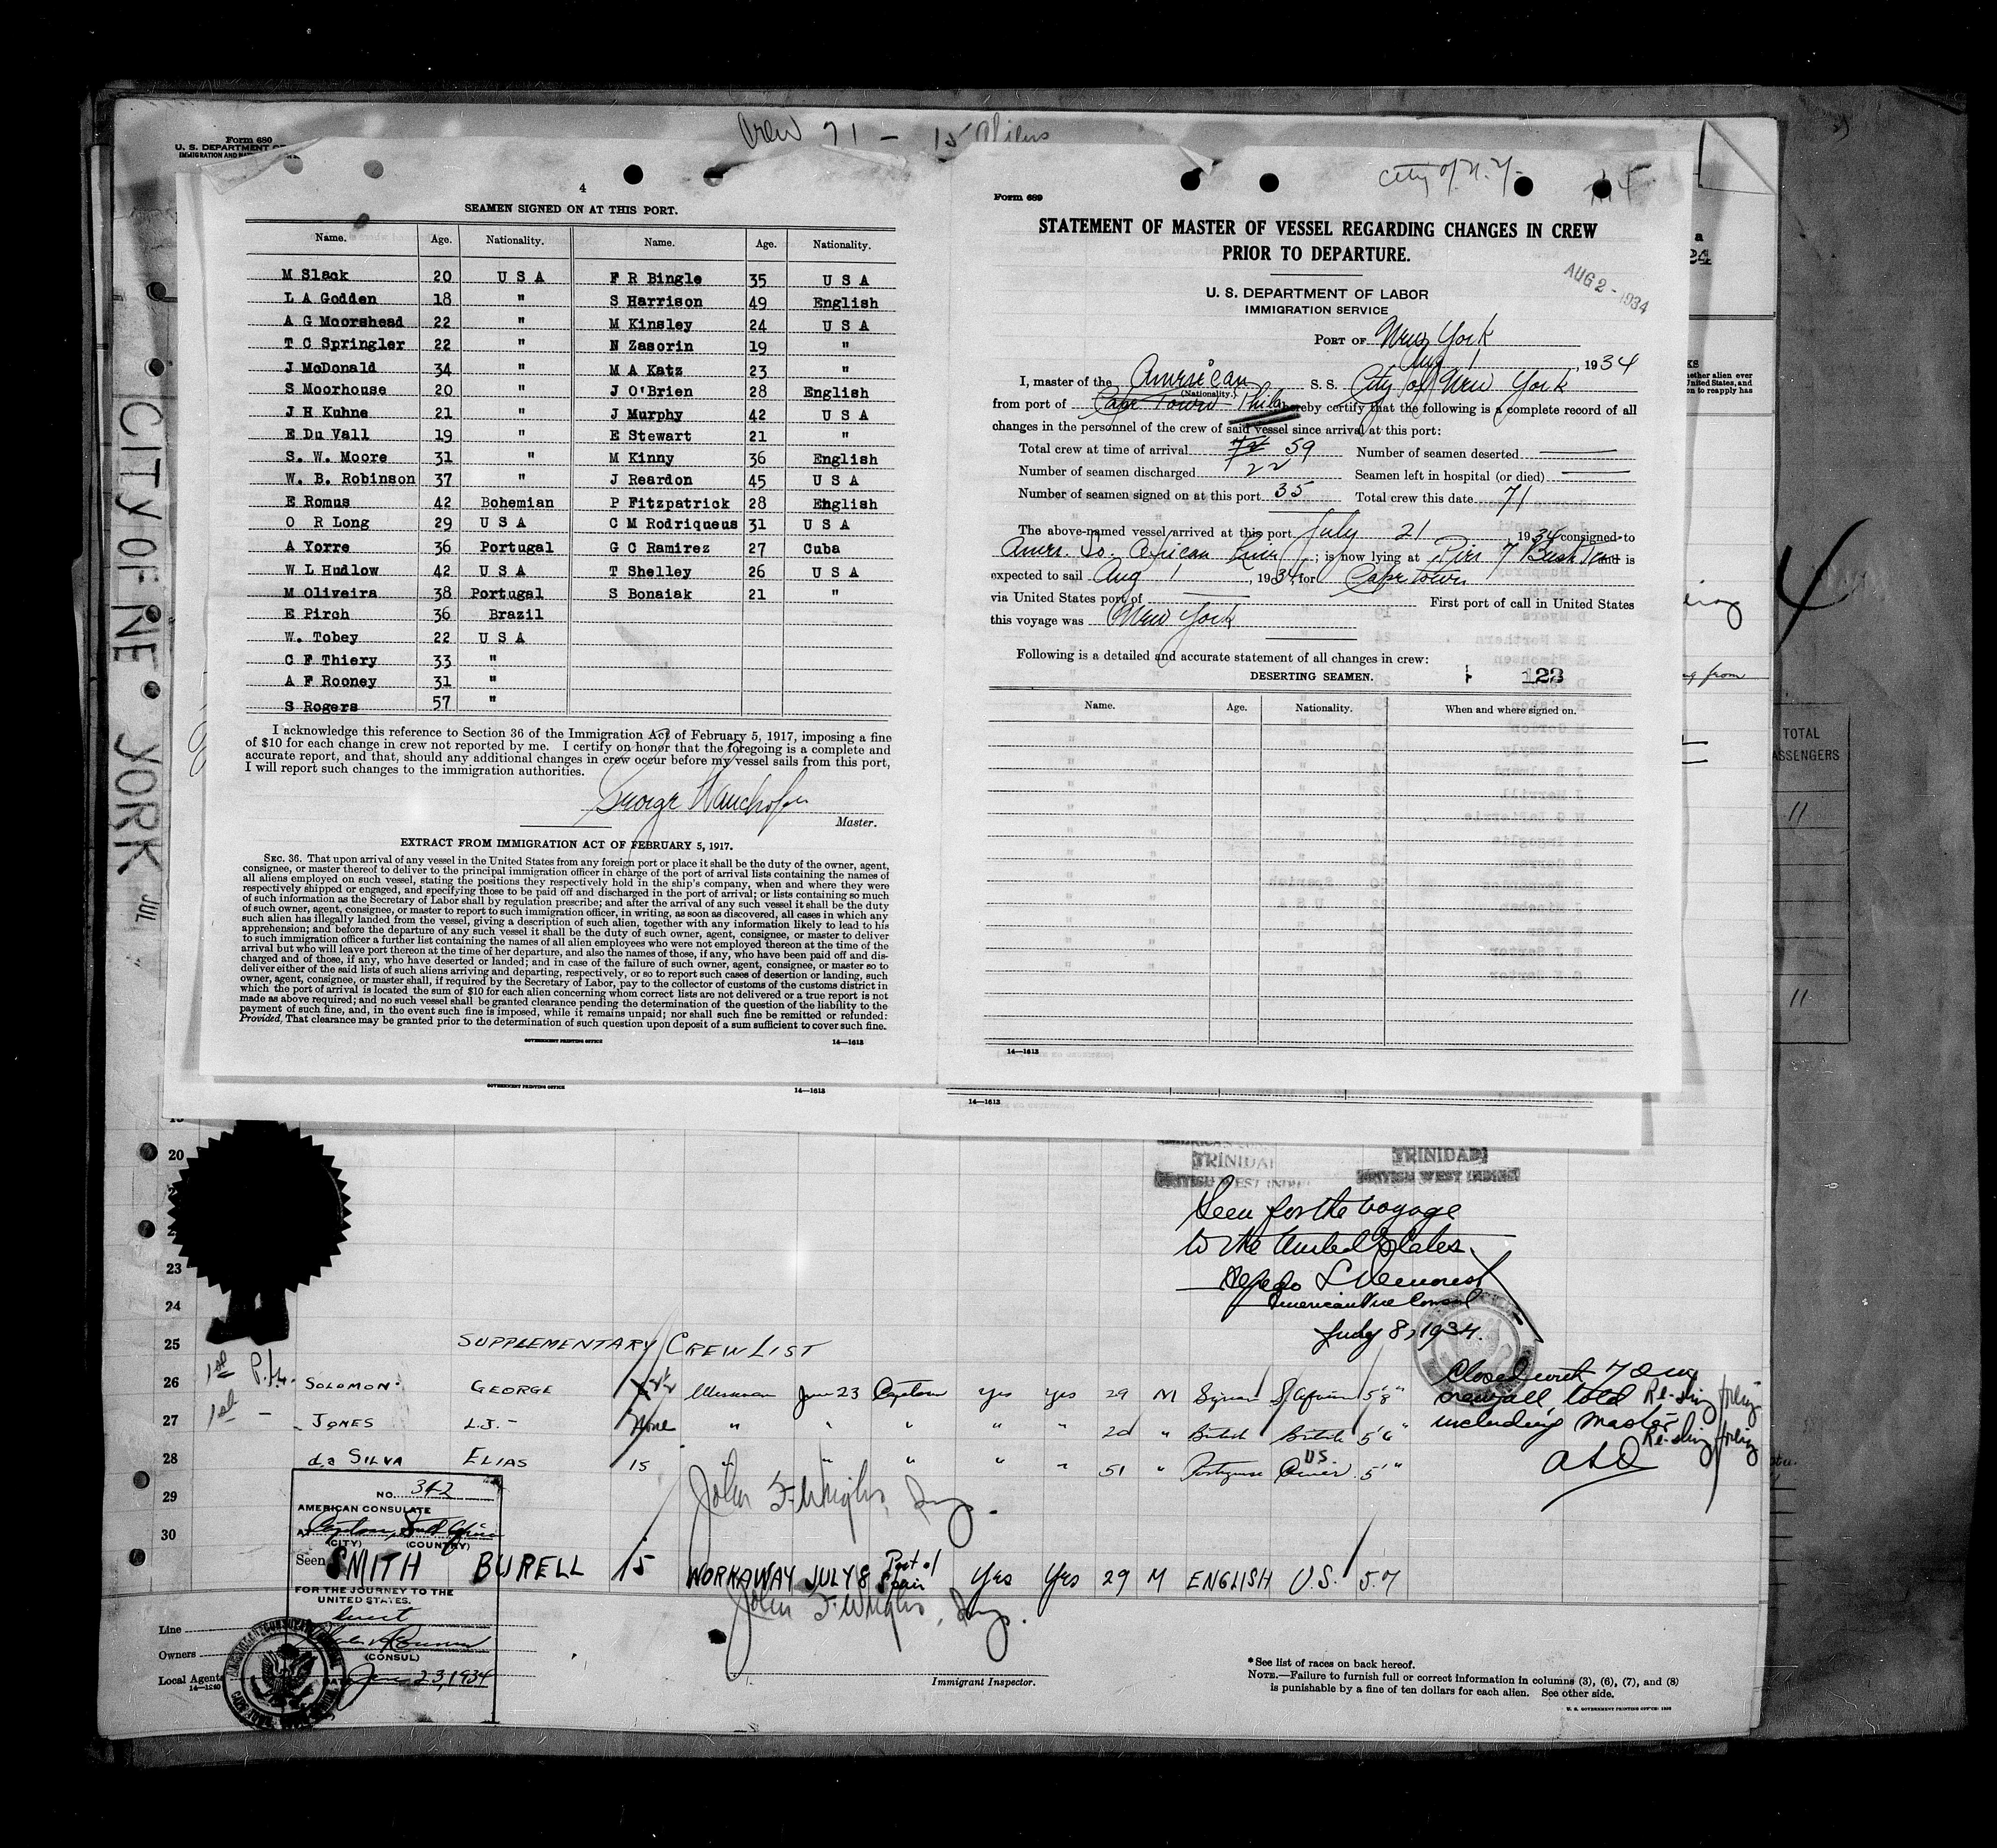 Crew 71 - 15 Aliens
Form 680
U. S. DEPARTMENT OF
CITY OF NEW YORK JUL
4
SEAMEN SIGNED ON AT THIS PORT.
Name. Age. Nationality. Name. Age. Nationality.
M Slack 20 U S A F R Bingle 35 U S A
L A Godden 18 " S Harrison 49 English
A G Moorshead 22 " M Kinsley 24 U S A
T C Springler 22 " N Zasorin 19 "
J McDonald 34 " M A Katz 23 "
S Moorhouse 20 " J O'Brien 28 English
J H Kuhne 21 " J Murphy 42 U S A
E Du Vall 19 " E Stewart 21 "
S. W. Moore 31 " M Kinny 36 English
W. B. Robinson 37 " J Reardon 45 U S A
E Romus 42 Bohemian P Fitzpatrick 28 English
O R Long 29 U S A C M Rodriqueus 31 U S A
A Yorre 36 Portugal G C Ramirez 27 Cuba
W L Hudlow 42 U S A T Shelley 26 U S A
M Oliveira 38 Portugal S Bonaiak 21 "
E Pirch 36 Brazil
W. Tobey 22 U S A
C F Thiery 33 "
A F Rooney 31 "
S Rogers 57 "
I acknowledge this reference to Section 36 of the Immigration Act of February 5, 1917, imposing a fine
of $10 for each change in crew not reported by me. I certify on honor that the foregoing is a complete and
accurate report, and that, should any additional changes in crew occur before my vessel sails from this port,
I will report such changes to the immigration authorities.
George
Master.
EXTRACT FROM IMMIGRATION ACT OF FEBRUARY 5, 1917.
SEC. 36. That upon arrival of any vessel in the United States from any foreign port or place it shall be the duty of the owner, agent,
consignee, or master thereof to deliver to the principal immigration officer in charge of the port of arrival lists containing the names of
all aliens employed on such vessel, stating the positions they respectively hold in the ship's company, when and where they were
respectively shipped or engaged, and specifying those to be paid off and discharged in the port of arrival; or lists containing so much
of such information as the Secretary of Labor shall by regulation prescribe; and after the arrival of any such vessel it shall be the duty
of such owner, agent, consignee, or master to report to such immigration officer, in writing, as soon as discovered, all cases in which any
such alien has illegally landed from the vessel, giving a description of such alien, together with any information likely to lead to his
apprehension; and before the departure of any such vessel it shall be the duty of such owner, agent, consignee, or master to deliver
to such immigration officer a further list containing the names of all alien employees who were not employed thereon at the time of the
arrival but who will leave port thereon at the time of her departure, and also the names of those, if any, who have been paid off and dis-
charged and of those, if any, who have deserted or landed; and in case of the failure of such owner, agent, consignee, or master so to
deliver either of the said lists of such aliens arriving and departing, respectively, or so to report such cases of desertion or landing, such
owner, agent, consignee, or master shall, if required by the Secretary of Labor, pay to the collector of customs of the customs district in
which the port of arrival is located the sum of $10 for each alien concerning whom correct lists are not delivered or a true report is not
made as above required; and no such vessel shall be granted clearance pending the determination of the question of the liability to the
payment of such fine, and, in the event such fine is imposed, while it remains unpaid; nor shall such fine be remitted or refunded:
Provided, That clearance may be granted prior to the determination of such question upon deposit of a sum sufficient to cover such fine.
GOVERNMENT PRINTING OFFICE 14—1613
GOVERNMENT PRINTING OFFICE 14—1613
City of N. Y.
Form 689
STATEMENT OF MASTER OF VESSEL REGARDING CHANGES IN CREW
PRIOR TO DEPARTURE.
AUG 2 - 1934
U. S. DEPARTMENT OF LABOR
IMMIGRATION SERVICE
PORT OF New York
Aug 1, 1934
I, master of the American S. S. City of New York
(Nationality.)
from port of Cape Town Phila hereby certify that the following is a complete record of all
changes in the personnel of the crew of said vessel since arrival at this port:
Total crew at time of arrival 59 Number of seamen deserted
Number of seamen discharged 22 Seamen left in hospital (or died)
Number of seamen signed on at this port 35 Total crew this date 71
The above-named vessel arrived at this port July 21 1934 consigned to
Amer. So. African Line; is now lying at Pier 7 Bush and is
expected to sail Aug 1, 1934, for Cape Town
via United States port of First port of call in United States
this voyage was New York
Following is a detailed and accurate statement of all changes in crew:
DESERTING SEAMEN. 123
Name. Age. Nationality. When and where signed on.
14—1613
14—1613
TOTAL
PASSENGERS
11
11
20
23
24
25
26
27
28
29
30
TRINIDAD
BRITISH WEST INDIES
TRINIDAD
BRITISH WEST INDIES
Seen for the voyage
to the United States.
American Vice Consul
July 8, 1934.
SUPPLEMENTARY CREW LIST
1st P.H. SOLOMON GEORGE Messman June 23 Capetown Yes Yes 29 M Syrian S. African 5'8"
1st - JONES L.J. None " " " " " 20 " British British 5'6"
da SILVA ELIAS 15 " " " " " 51 " Portuguese U.S. 5'"
Closed with 70 in
crew all told
including Master
John F. Wright, Insp.
NO. 342
AMERICAN CONSULATE
AT Capetown, South Africa
(CITY) (COUNTRY)
Seen
FOR THE JOURNEY TO THE
UNITED STATES.
(CONSUL)
DATE June 23, 1934
SMITH BURELL 15 WORKAWAY JULY 8 Port of Spain Yes Yes 29 M ENGLISH U.S. 5.7
John F. Wright, Insp.
Line
Owners
Local Agents
14—1240
Immigrant Inspector.
* See list of races on back hereof.
NOTE.—Failure to furnish full or correct information in columns (3), (6), (7), and (8)
is punishable by a fine of ten dollars for each alien. See other side.
U. S. GOVERNMENT PRINTING OFFICE: